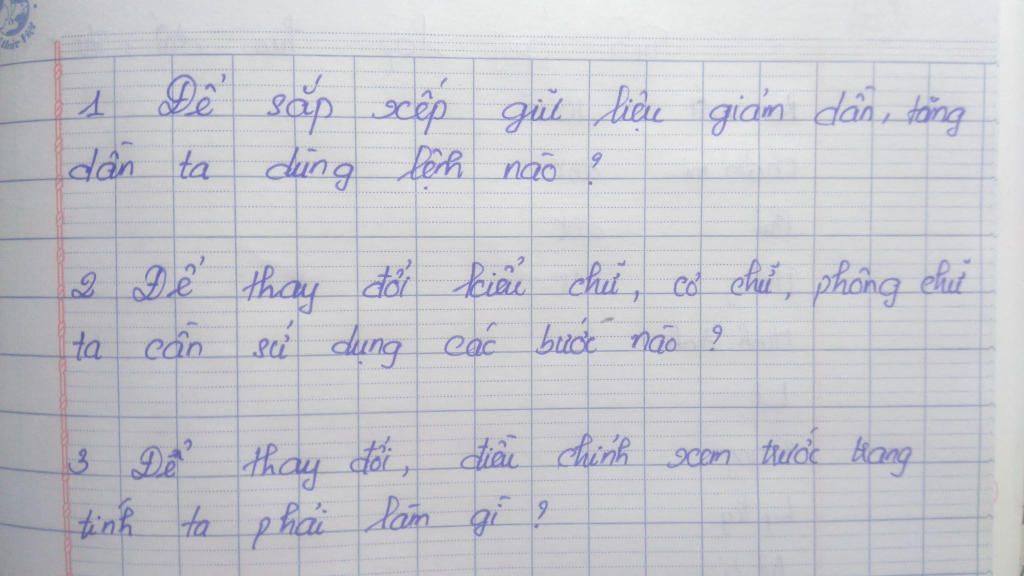 1 Để sắp xếp giữ liệu giảm dần, tăng
dần ta dùng lệnh nào?
2 Để thay đổi kiểu chữ, cỡ chữ, phông chữ
ta cần sử dụng các bước nào?
3 Để thay đổi, điều chỉnh xem trước trang
tính ta phải làm gì?